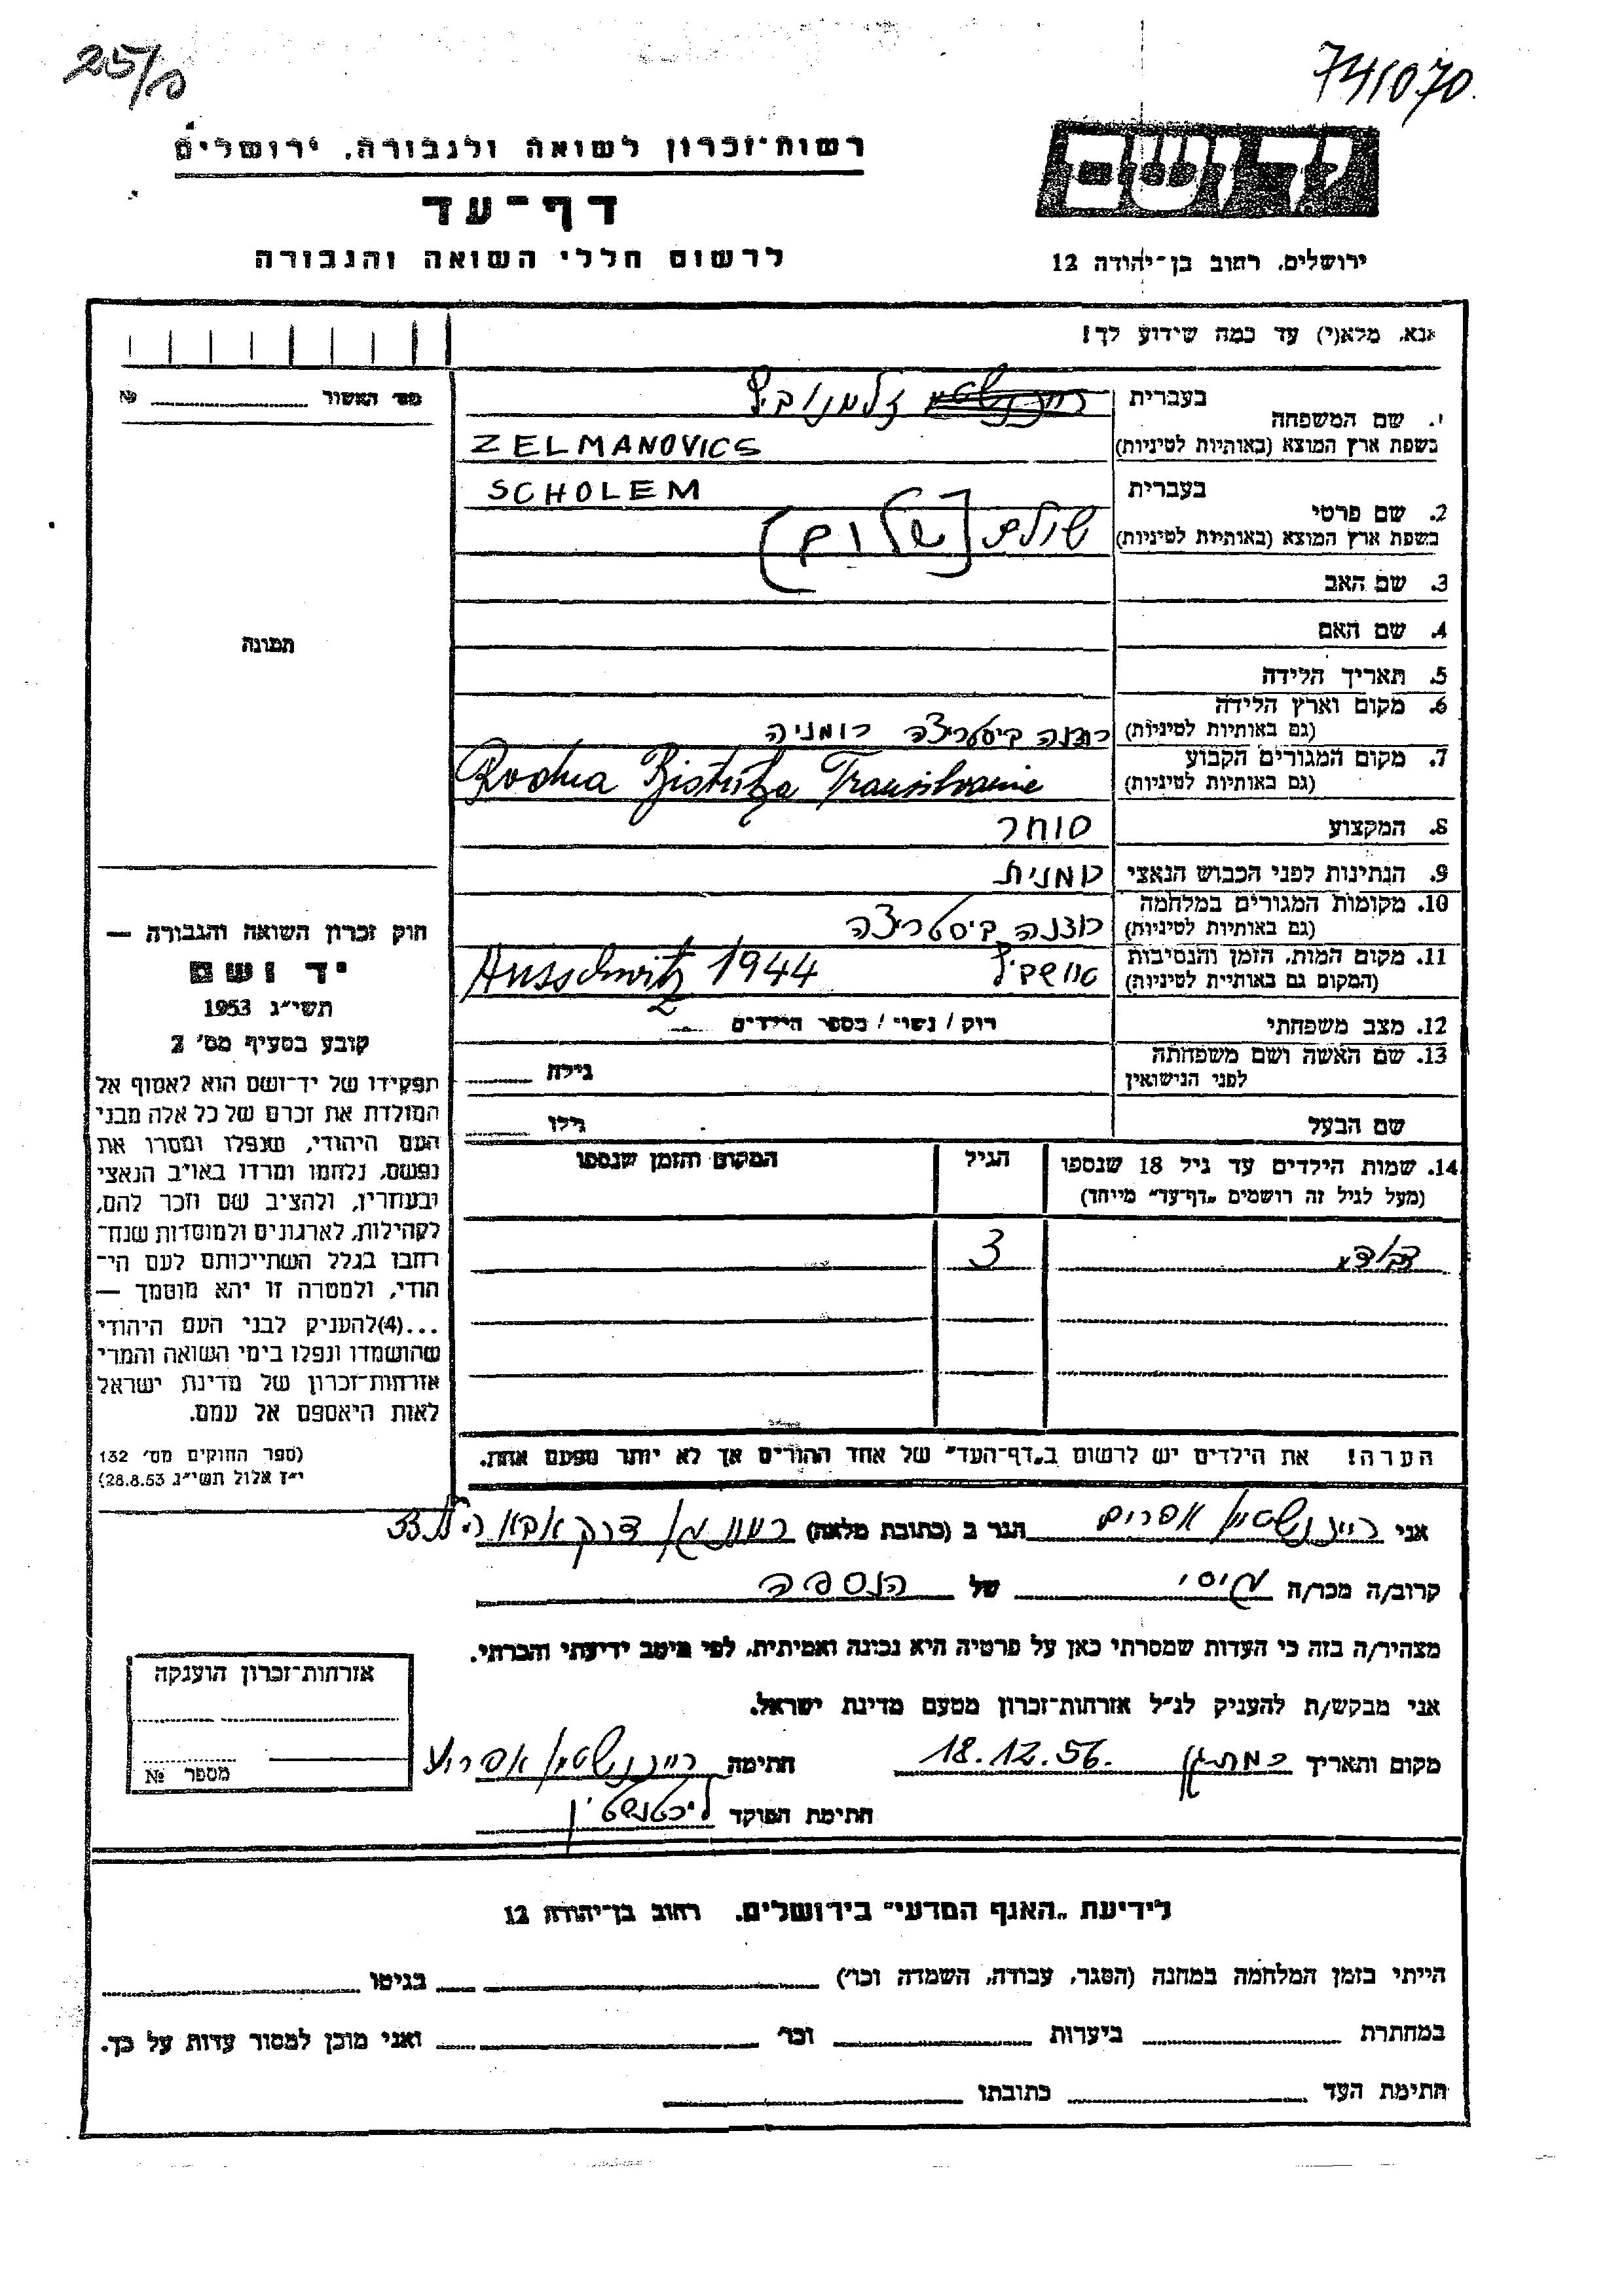 25/ס
741070
רשות־זכרון לשואה ולגבורה, ירושלים
דף־עד
לרשום חללי השואה והגבורה
יד ושם
ירושלים, רחוב בן־יהודה 12
אנא, מלא(י) עד כמה שידוע לך!
מס׳ האשור № 
1. שם המשפחה בעברית זלמנוביץ
בשפת ארץ המוצא (באותיות לטיניות) ZELMANOVICS
2. שם פרטי בעברית SCHOLEM
בשפת ארץ המוצא (באותיות לטיניות) שולם [שלום]
3. שם האב
4. שם האם
5. תאריך הלידה
6. מקום וארץ הלידה (גם באותיות לטיניות) רודנה ביסטריצה רומניה
7. מקום המגורים הקבוע (גם באותיות לטיניות) Rodna Bistritza Transilvanie
8. המקצוע סוחר
9. הנתינות לפני הכבוש הנאצי רומנית
10. מקומות המגורים במלחמה (גם באותיות לטיניות) רודנה ביסטריצה
11. מקום המות, הזמן והנסיבות (המקום גם באותיות לטיניות) אושביץ Ausschwitz 1944
12. מצב משפחתי רוק / נשוי / מספר הילדים
13. שם האשה ושם משפחתה לפני הנישואין גילה
שם הבעל גילו
14. שמות הילדים עד גיל 18 שנספו (מעל לגיל זה רושמים „דף־עד״ מייחד) הגיל המקום והזמן שנספו
3
הערה! את הילדים יש לרשום ב„דף־העד״ של אחד ההורים אך לא יותר מפעם אחת.
תמונה
חוק זכרון השואה והגבורה —
יד ושם
תשי״ג 1953
קובע בסעיף מס׳ 2
תפקידו של יד־ושם הוא לאסוף אל
המולדת את זכרם של כל אלה מבני
העם היהודי, שנפלו ומסרו את
נפשם, נלחמו ומרדו באויב הנאצי
ובעוזריו, ולהציב שם וזכר להם,
לקהילות, לארגונים ולמוסדות שנח־
רבו בגלל השתייכותם לעם הי־
הודי, ולמטרה זו יהא מוסמך —
...(4)להעניק לבני העם היהודי
שהושמדו ונפלו בימי השואה והמרי
אזרחות־זכרון של מדינת ישראל
לאות היאספם אל עמם.
(ספר החוקים מס׳ 132
י״ז אלול תשי״ג 28.8.53)
אני ריינשטיין אפרים הגר ב (כתובת מלאה) רמת גן דרך אבא הלל 33
קרוב/ה מכר/ה גיסי של הנספה
מצהיר/ה בזה כי העדות שמסרתי כאן על פרטיה היא נכונה ואמיתית, לפי מיטב ידיעתי והכרתי.
אני מבקש/ת להעניק לנ״ל אזרחות־זכרון מטעם מדינת ישראל.
מקום ותאריך רמת־גן 18.12.56. חתימה ריינשטיין אפרים
חתימת הפוקד ליכטנשטין
אזרחות־זכרון הוענקה
מספר №
לידיעת „האגף המדעי״ בירושלים, רחוב בן־יהודה 12
הייתי בזמן המלחמה במחנה (הסגר, עבודה, השמדה וכו׳) בגיטו
במחתרת ביערות וכו׳ ואני מוכן למסור עדות על כך.
חתימת העד כתובתו